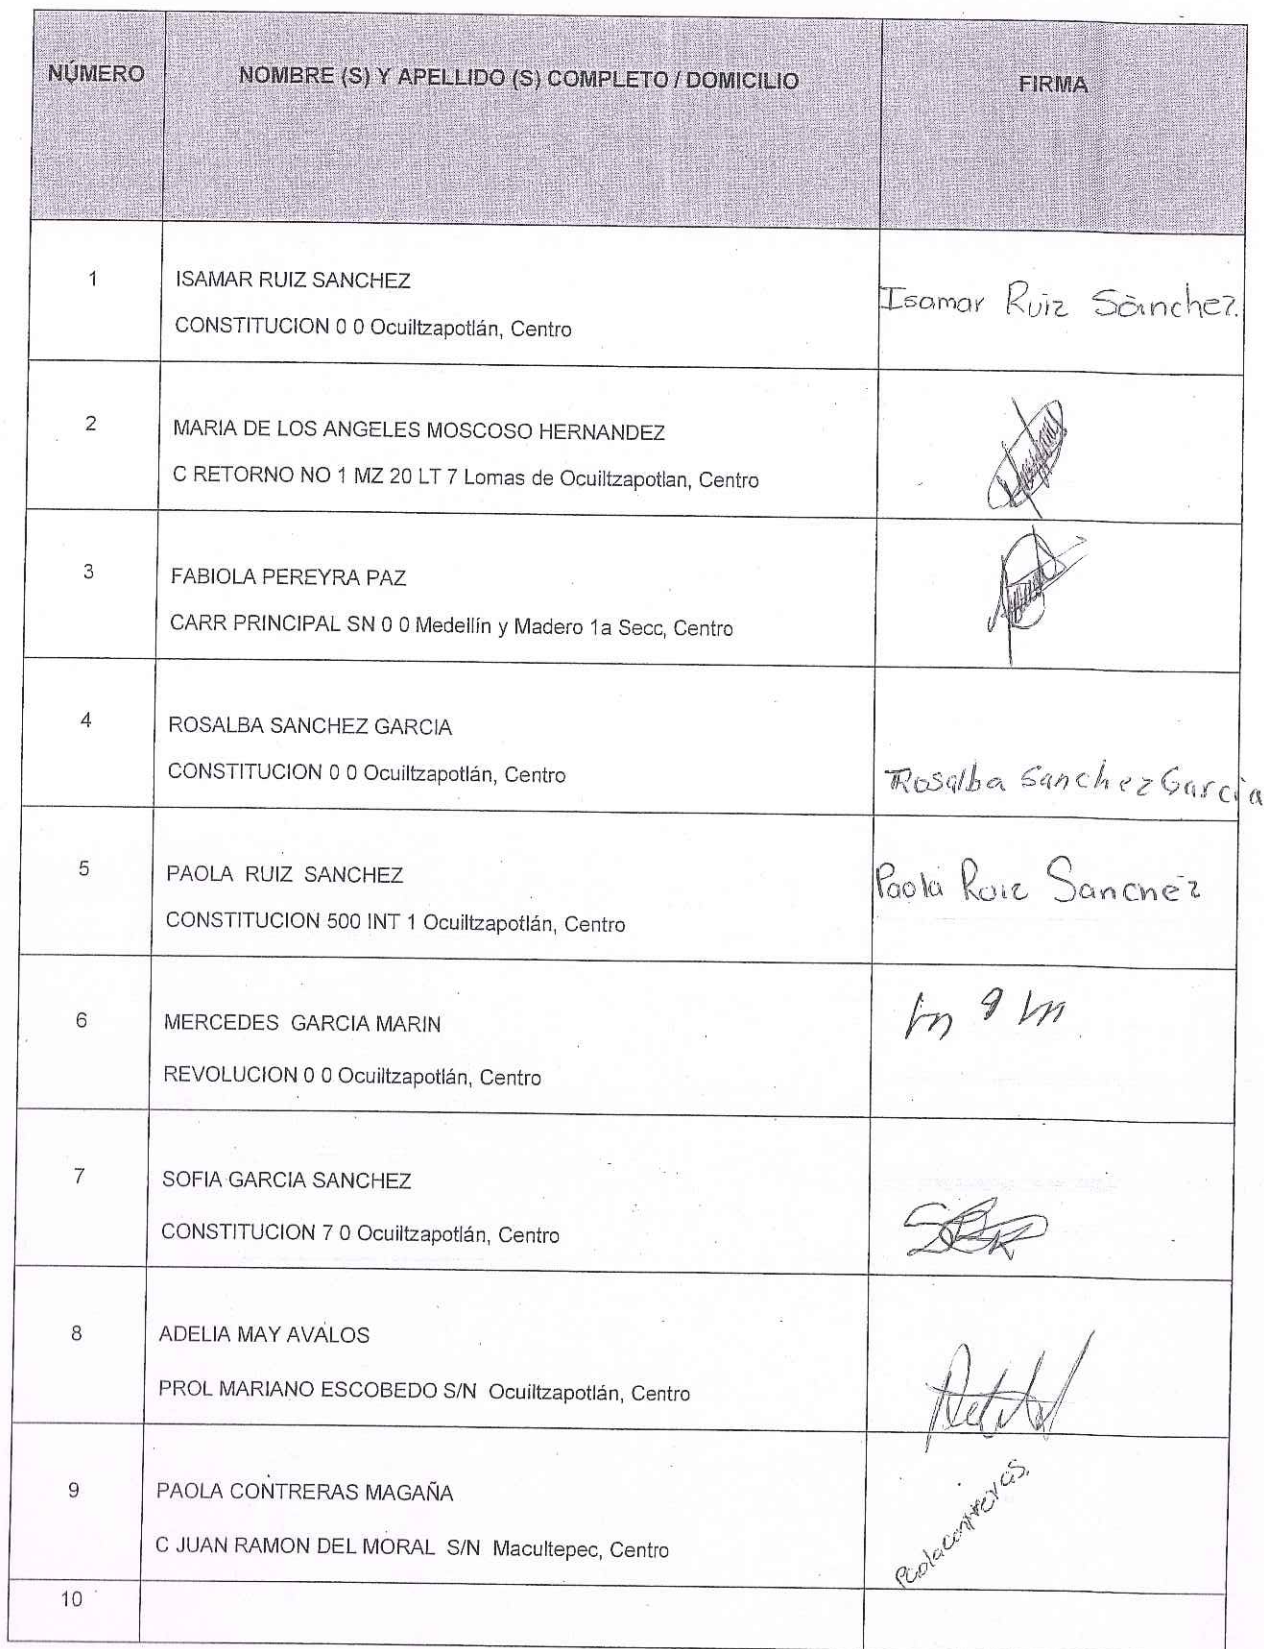 NÚMERO
NOMBRE (S) Y APELLIDO (S) COMPLETO / DOMICILIO
FIRMA
1
ISAMAR RUIZ SANCHEZ
CONSTITUCION 0 0 Ocuiltzapotlán, Centro
Isamar Ruiz Sánchez.
2
MARIA DE LOS ANGELES MOSCOSO HERNANDEZ
C RETORNO NO 1 MZ 20 LT 7 Lomas de Ocuiltzapotlan, Centro
3
FABIOLA PEREYRA PAZ
CARR PRINCIPAL SN 0 0 Medellín y Madero 1a Secc, Centro
4
ROSALBA SANCHEZ GARCIA
CONSTITUCION 0 0 Ocuiltzapotlán, Centro
Rosalba Sanchez García
5
PAOLA RUIZ SANCHEZ
CONSTITUCION 500 INT 1 Ocuiltzapotlán, Centro
Paola Ruiz Sanchez
6
MERCEDES GARCIA MARIN
REVOLUCION 0 0 Ocuiltzapotlán, Centro
7
SOFIA GARCIA SANCHEZ
CONSTITUCION 7 0 Ocuiltzapotlán, Centro
8
ADELIA MAY AVALOS
PROL MARIANO ESCOBEDO S/N Ocuiltzapotlán, Centro
9
PAOLA CONTRERAS MAGAÑA
C JUAN RAMON DEL MORAL S/N Macultepec, Centro
Paola contreras.
10